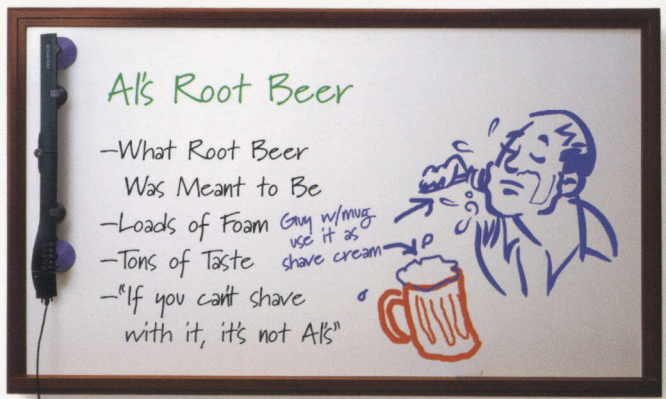 Al's Root Beer
–What Root Beer
Was Meant to Be
–Loads of Foam
–Tons of Taste
–"If you can't shave
with it, it's not Al's"
Guy w/mug
use it as
shave cream